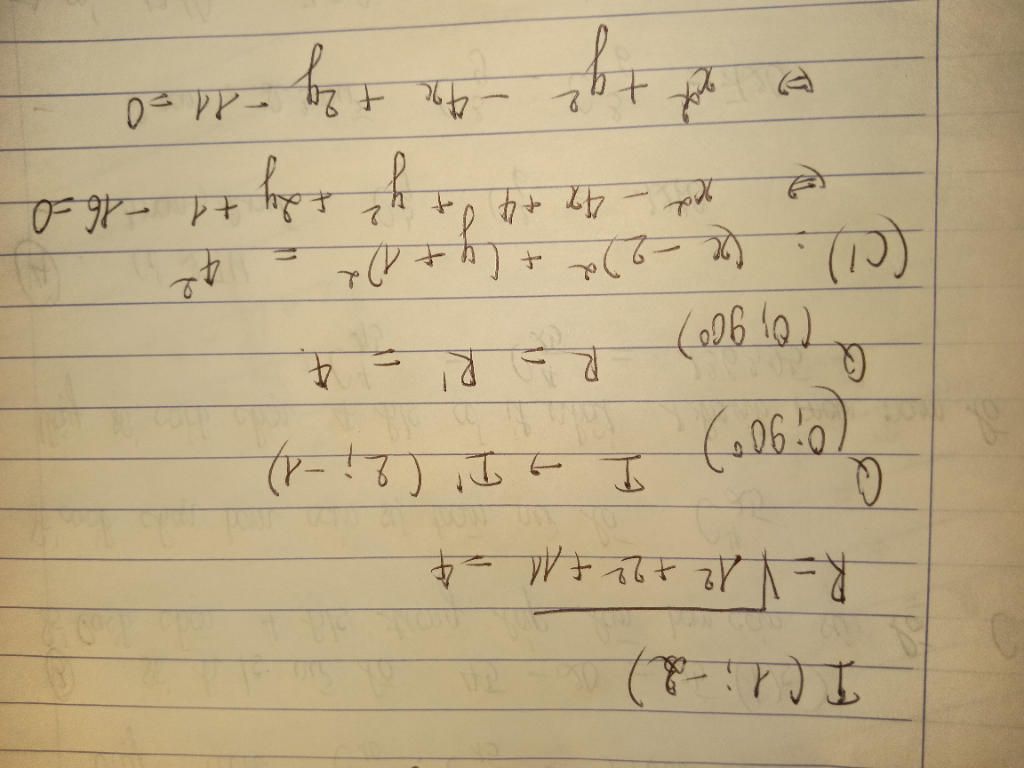 I (1; -2)
R = √1² + 2² + 11 = 4
Q(0; 90°) I → I' (2; -1)
Q(0, 90°) R = R' = 4
(C') : (x - 2)² + (y + 1)² = 4²
⇔ x² - 4x + 4 + y² + 2y + 1 - 16 = 0
⇔ x² + y² - 4x + 2y - 11 = 0